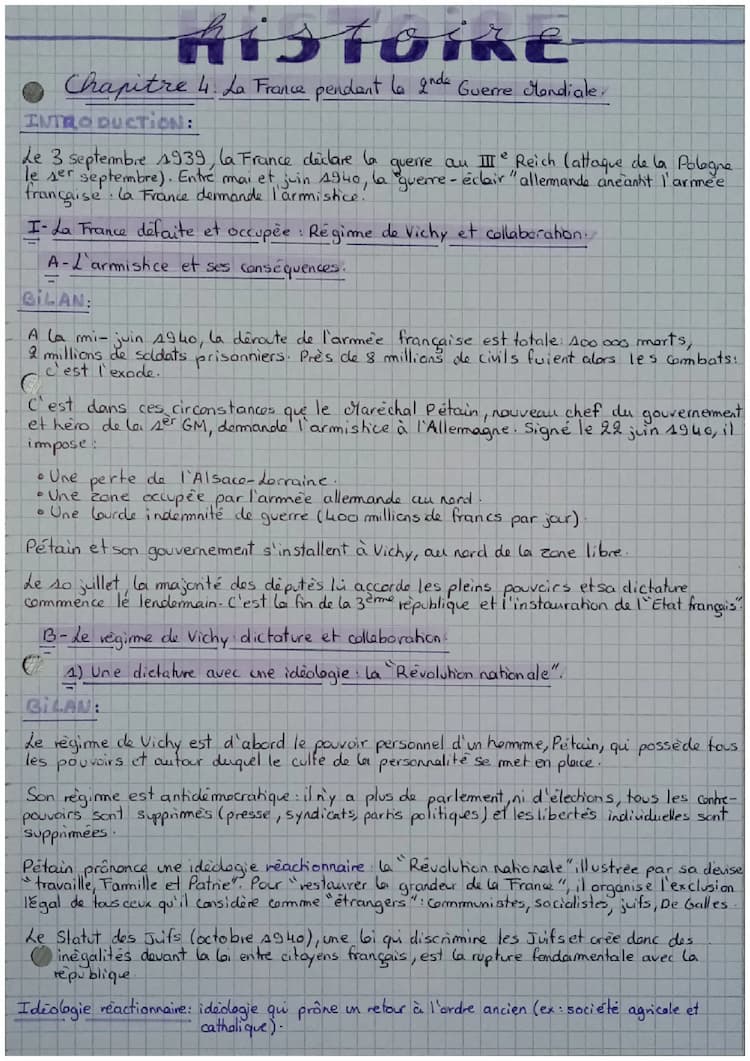 HISTOIRE
histoire
Chapitre 4: La France pendant la 2nde Guerre Mondiale.
INTRODUCTION:
Le 3 septembre 1939, la France déclare la guerre au IIIe Reich (attaque de la Pologne
le 1er septembre). Entre mai et juin 1940, la "guerre-éclair" allemande anéantit l'armée
française : la France demande l'armistice.
I- La France défaite et occupée : Régime de Vichy et collaboration.
A- L'armistice et ses conséquences.
BILAN:
A la mi-juin 1940, la déroute de l'armée française est totale: 100 000 morts,
2 millions de soldats prisonniers. Près de 8 millions de civils fuient alors les combats:
c'est l'exode.
C'est dans ces circonstances que le Maréchal Pétain, nouveau chef du gouvernement
et héro de la 1er GM, demande l'armistice à l'Allemagne. Signé le 22 juin 1940, il
impose :
• Une perte de l'Alsace-Lorraine.
• Une zone occupée par l'armée allemande au nord.
• Une lourde indemnité de guerre (400 millions de francs par jour).
Pétain et son gouvernement s'installent à Vichy, au nord de la zone libre.
Le 10 juillet, la majorité des députés lui accorde les pleins pouvoirs et sa dictature
commmence le lendemain. C'est la fin de la 3ème république et l'instauration de l'"Etat français".
B- Le régime de Vichy : dictature et collaboration.
1) Une dictature avec une idéologie : la "Révolution nationale".
BILAN:
Le régime de Vichy est d'abord le pouvoir personnel d'un homme, Pétain, qui possède tous
les pouvoirs et autour duquel le culte de la personnalité se met en place.
Son régime est antidémocratique : il n'y a plus de parlement, ni d'élections, tous les contre-
pouvoirs sont supprimés (presse, syndicats, partis politiques) et les libertés individuelles sont
supprimées.
Pétain prônonce une idéologie réactionnaire : la "Révolution nationale" illustrée par sa devise
"travaille, Famille et Patrie". Pour "restaurer la grandeur de la France", il organise l'exclusion
légal de tous ceux qu'il considère comme "étrangers" : communistes, socialistes, juifs, De Galles.
Le Statut des Juifs (octobre 1940), une loi qui discrimine les Juifs et crée donc des
inégalités devant la loi entre citoyens français, est la rupture fondamentale avec la
république.
Idéologie réactionnaire: idéologie qui prône un retour à l'ordre ancien (ex : société agricole et
catholique).